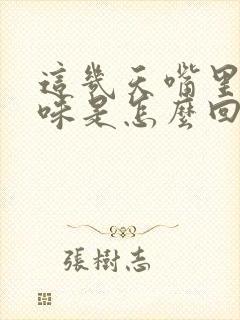 這幾天嘴里
味是怎麼回
張樹志